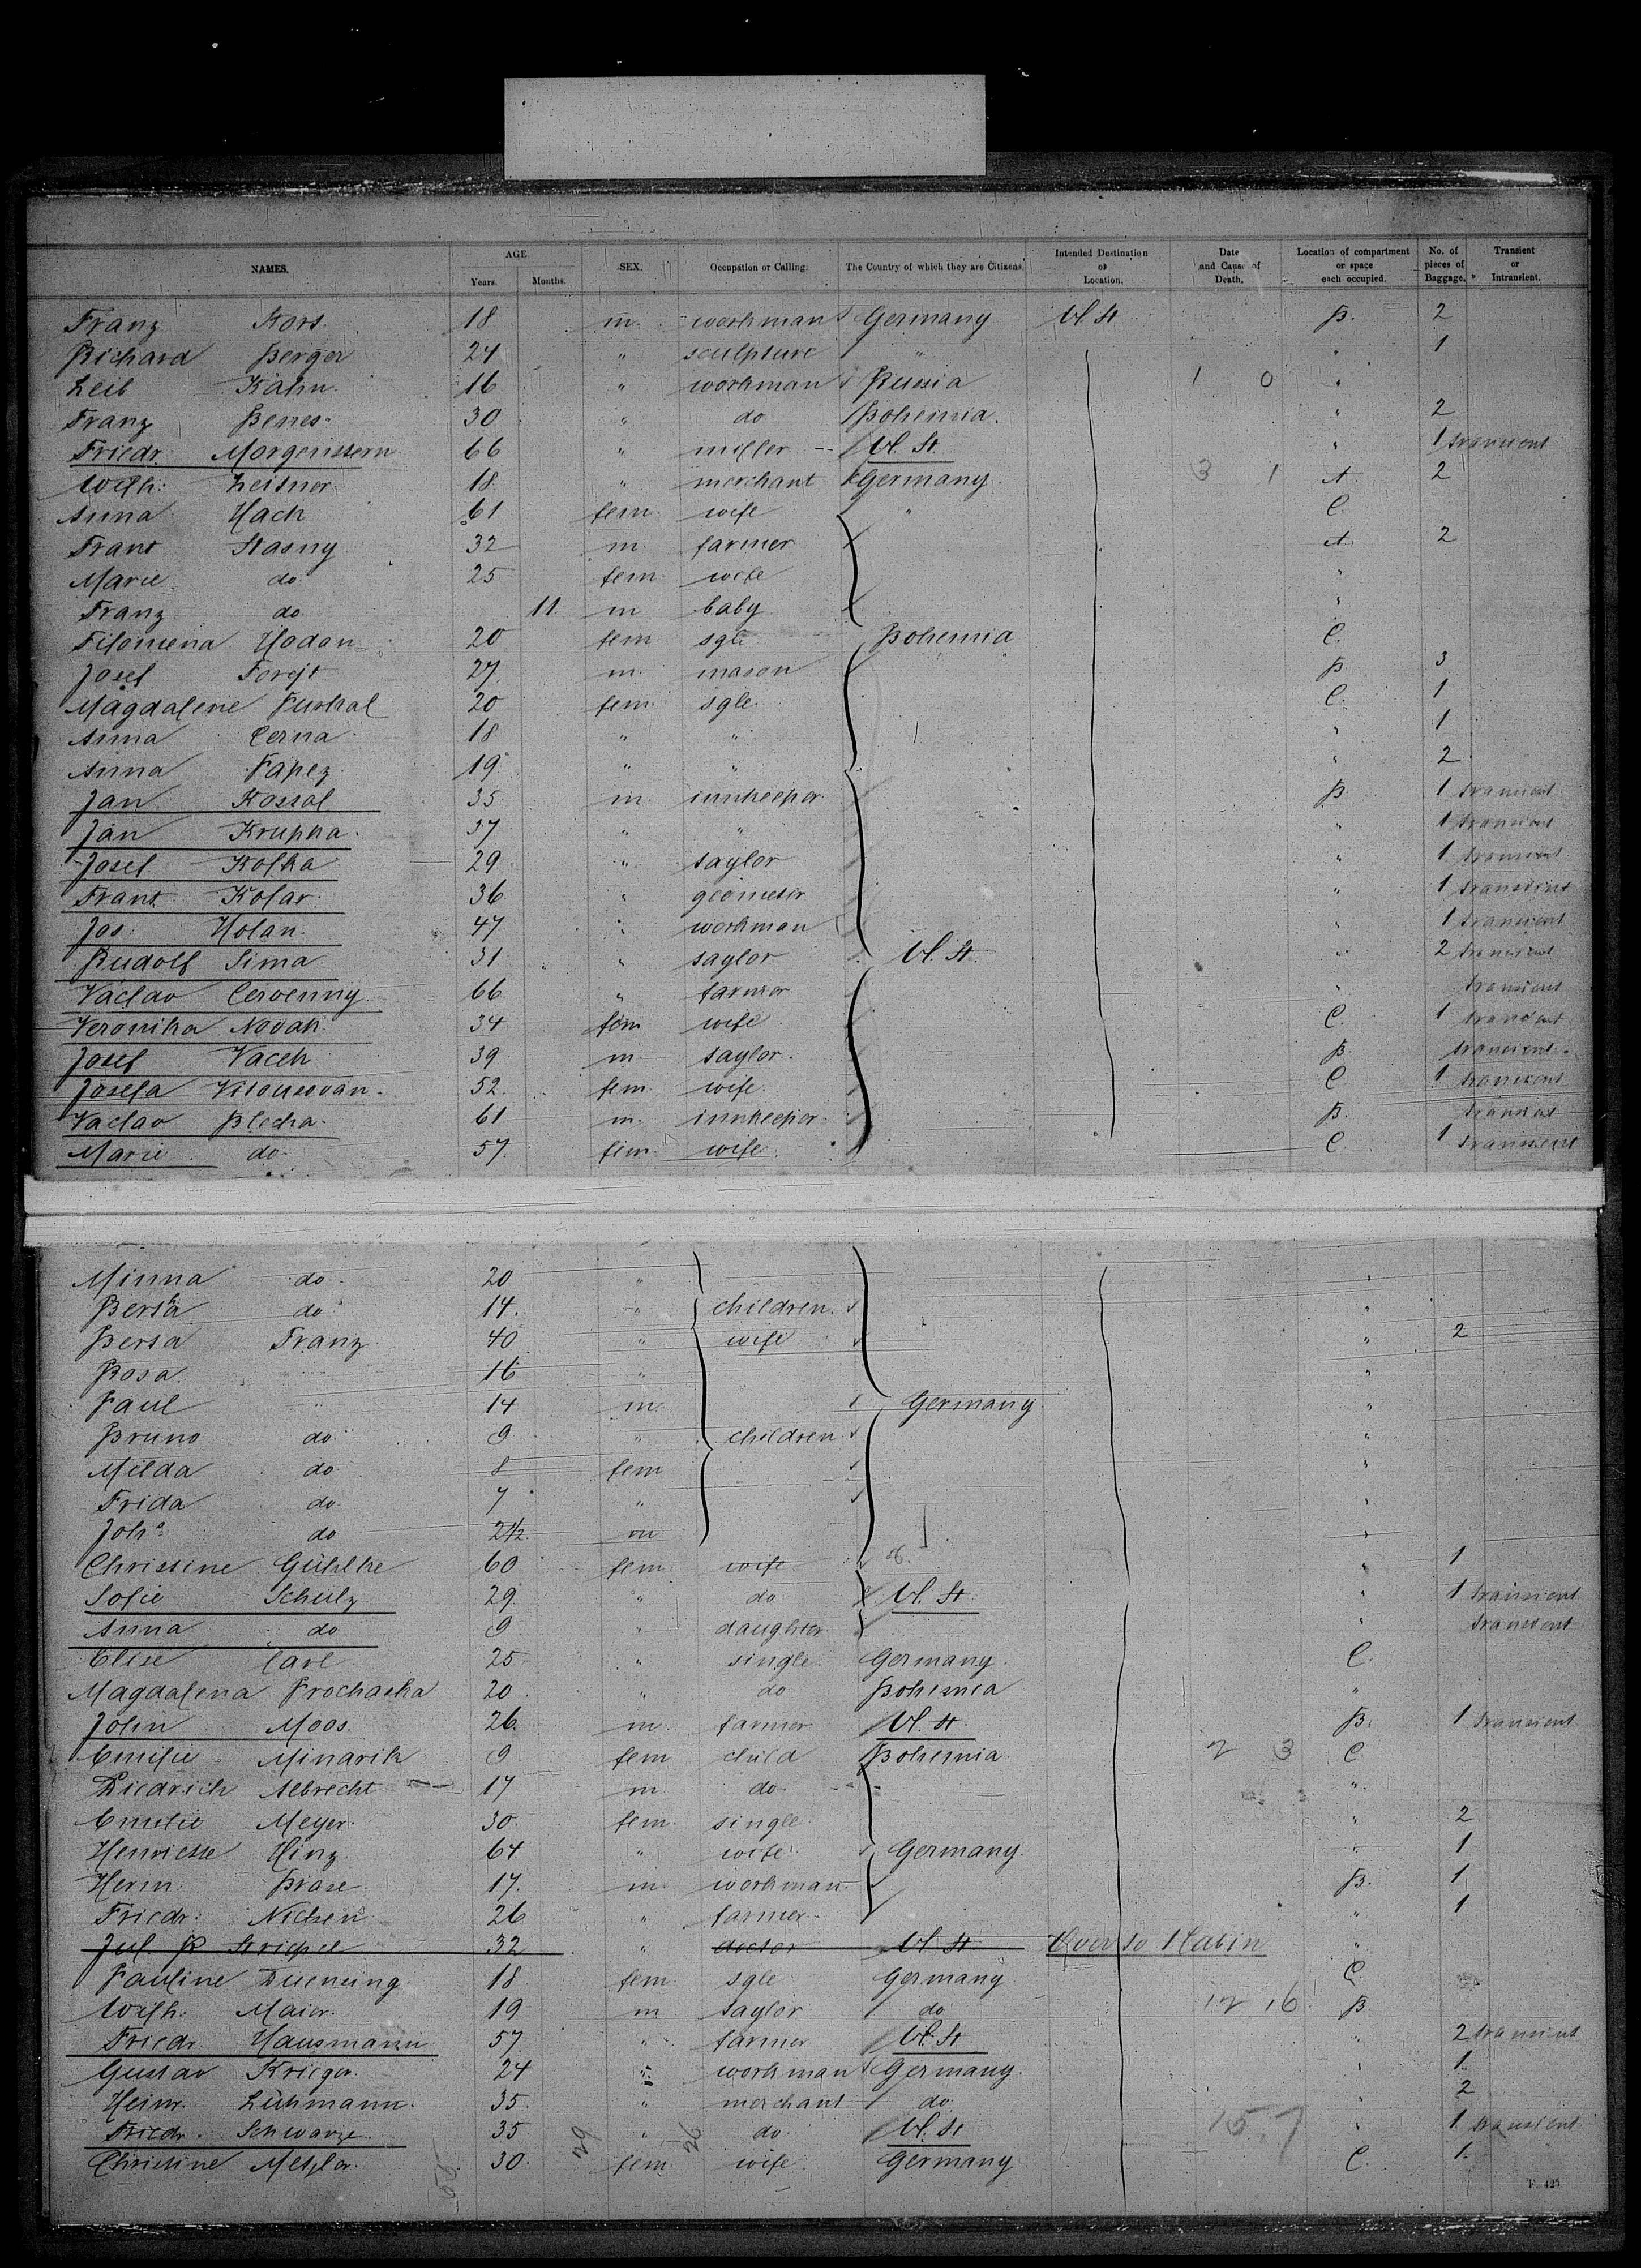 NAMES. AGE Years. Months. SEX. Occupation or Calling. The Country of which they are Citizens. Intended Destination or Location. Date and Cause of Death. Location of compartment or space each occupied. No. of pieces of Baggage. Transient or Intransient.
Franz Kors. 18 m. workman Germany U. St. B. 2
Richard Berger 24 " sculpture " " 1
Leib Kahn. 16 " workman Russia 1 0 "
Franz Benes. 30 " do Bohemia. " 2
Friedr. Morgenstern 66 " miller U. St. " 1 transient
Wilh: Leitner 18 " merchant Germany 3 1 A 2
Anna Hach 61 fem wife " C.
Frant Stasny 32 m farmer A 2
Marie do 25 fem wife "
Franz do 11 m baby "
Filomena Hodan 20 fem sgle Bohemia C.
Josef Forejt 27 m. mason B 3
Magdalene Puskal 20 fem. sgle. C. 1
Anna Cerna 18 " " " 1
Anna Papez 19 " " " 2
Jan Kossal 35 m innkeeper B 1 transient
Jan Krupka 37 " " " 1 transient
Josef Kolka 29 " taylor " 1 transient
Frant Kolar. 36 " geometer " 1 transient
Jos. Holan. 47 " workman " 1 transient
Rudolf Sima 31 " taylor U. St. " 2 transient
Vaclav Cervenny 66 " farmer " transient
Veronika Novak 34 fem wife C. 1 transient
Josef Vacek 39 m taylor. B transient
Josefa 52. fem. wife. C 1 transient
Vaclav Blecha 61 m. innkeeper B. transient
Marie do 57. fem. wife. C 1 transient
Minna do 20 " "
Bertha do 14. " children. "
Berta Franz 40 " wife " 2
Rosa " 16 " "
Paul " 14 m Germany. "
Bruno do 9 " children "
Milda do 8 fem "
Frida do 7 " "
Joh: do 2 1/2 m "
Christine Gühlke 60 fem wife " 1
Sofie Schulz 29 " do U. St. " 1 transient
Anna do 9 " daughter " transient
Elise Carl 25 " single Germany. C.
Magdalena Prochaska 20 " do Bohemia "
John Moos. 26. m. farmer U. St. B. 1 transient
Emilie Minarik 9 fem child Bohemia. 2 3 C
Diedrich Albrecht 17 m do. "
Emilie Meyer. 30. fem single " 2
Henriette Hinz 64 " wife Germany. " 1
Herm. Brase 17. m. workman B. 1
Friedr. Nielsen 26 " farmer " 1
Jul. R Striepel 32 " doctor U. St. Over to I Cabin "
Pauline Duensing 18 fem sgle Germany C.
Wilh. Maier. 19 m taylor do 12 16 B
Friedr. Hausmann 57 " farmer U. St. " 2 transient
Gustav Krieger. 24 " workman Germany. " 1
Heinr. Lühmann. 35. " merchant do. " 2
Friedr. Schwarze. 35 " do. U. St. 15 7 " 1 transient
Christine Metzler. 30. fem. wife Germany C. 1.
59 29 26
F. 425